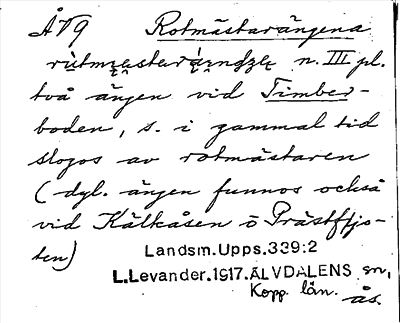 ÅVg Rotmästarängena
n. III pl.
två ängen vid Timber-
boden, s. i gammal tid
slogos av rotmästaren
(dyl. ängen funnos också
vid Kälkåsen o Prästffjo-
ten)
Landsm.Upps.339:2
L.Levander.1917.ÄLVDALENS sn,
Kopp. län. ås.